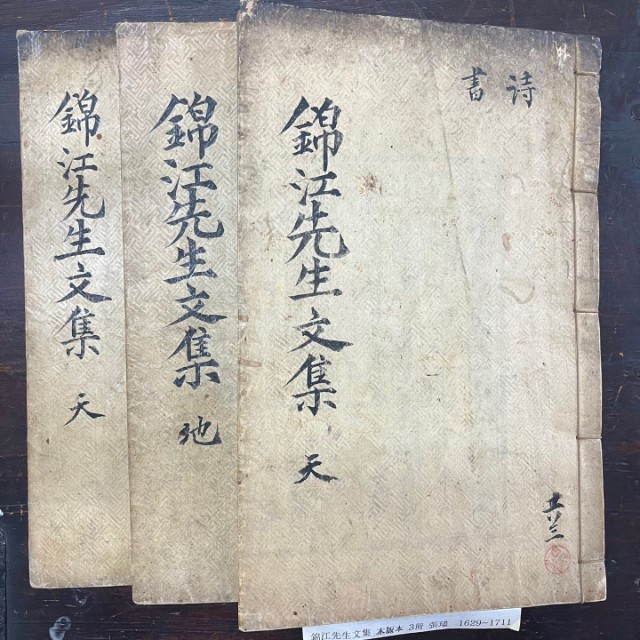 詩
書
錦江先生文集 天
共三
錦江先生文集 地
錦江先生文集 天
錦江先生文集 木版本 3冊 張 1629~1711